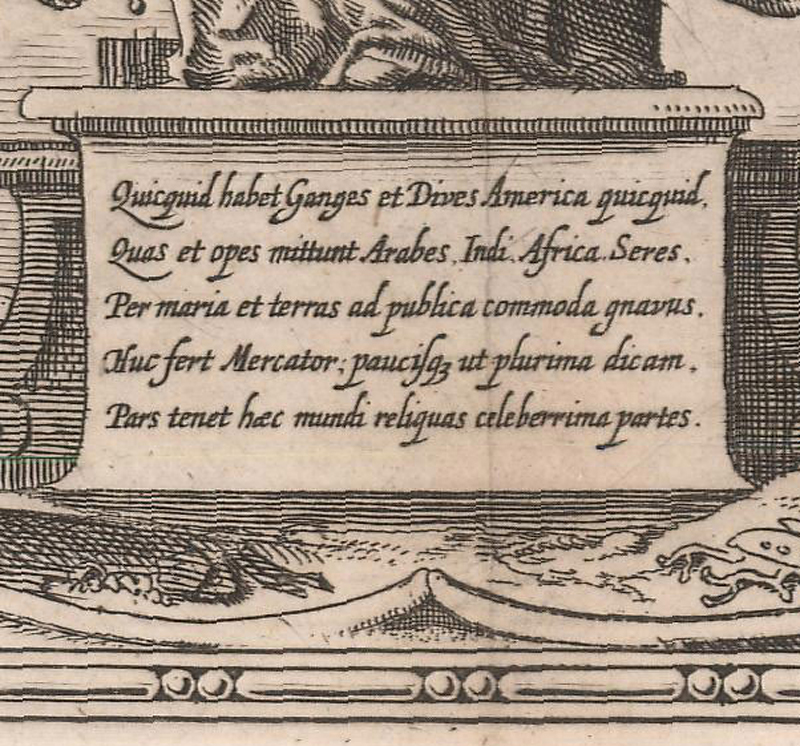 Quicquid habet Ganges et Dives America quicquid,
Quas et opes mittunt Arabes, Indi, Africa, Seres,
Per maria et terras ad publica commoda gnavus,
Huc fert Mercator; paucisq₃ ut plurima dicam,
Pars tenet hæc mundi reliquas celeberrima partes.